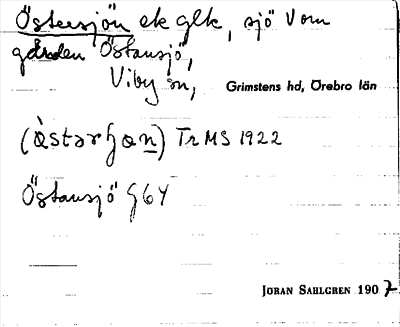 Östersjön ek glk, sjö V om
gården Östansjö,
Viby sn,
Grimstens hd, Örebro län
(östərʃøn) Tr MS 1922
Östansjö G64
JÖRAN SAHLGREN 1907